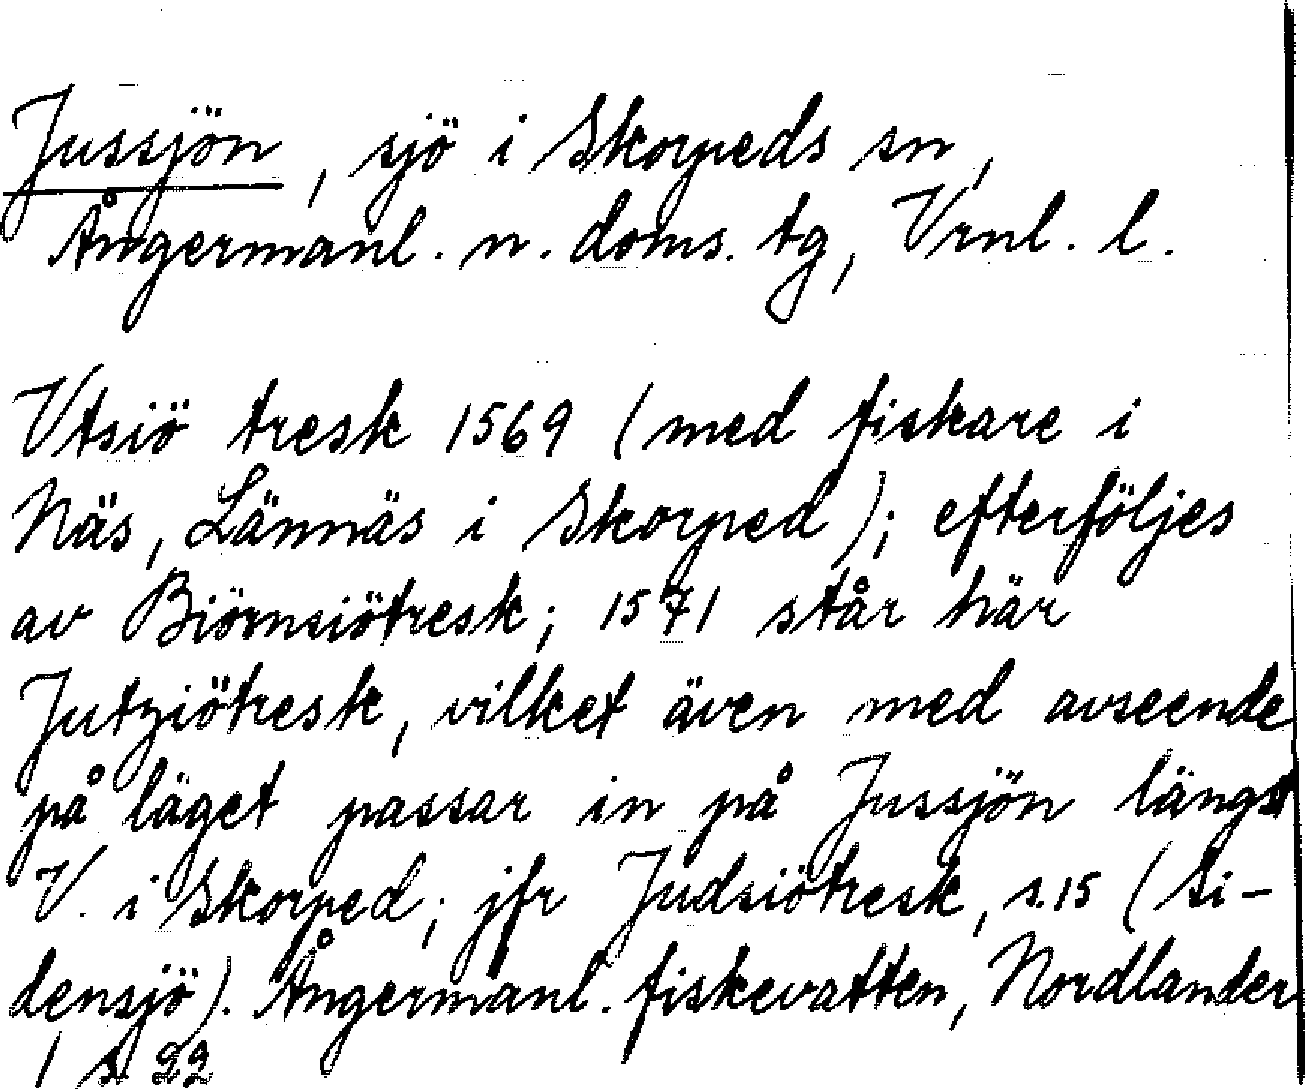 Jussjön, sjö i Skorpeds sn,
Ångermanl. n. doms. tg, Vrnl. l.
Vtsiö tresk 1569 (med fiskare i
Näs, Lännäs i Skorped); efterföljes
av Biörnsiötresk; 1571 står här
Jutziötresk, vilket även med avseende
på läget passar in på Jussjön längst
V. i Skorped; jfr Judsiötresk, s. 15 (Si-
densjö). Ångermanl. fiskevatten, Nordlander
1 s. 22